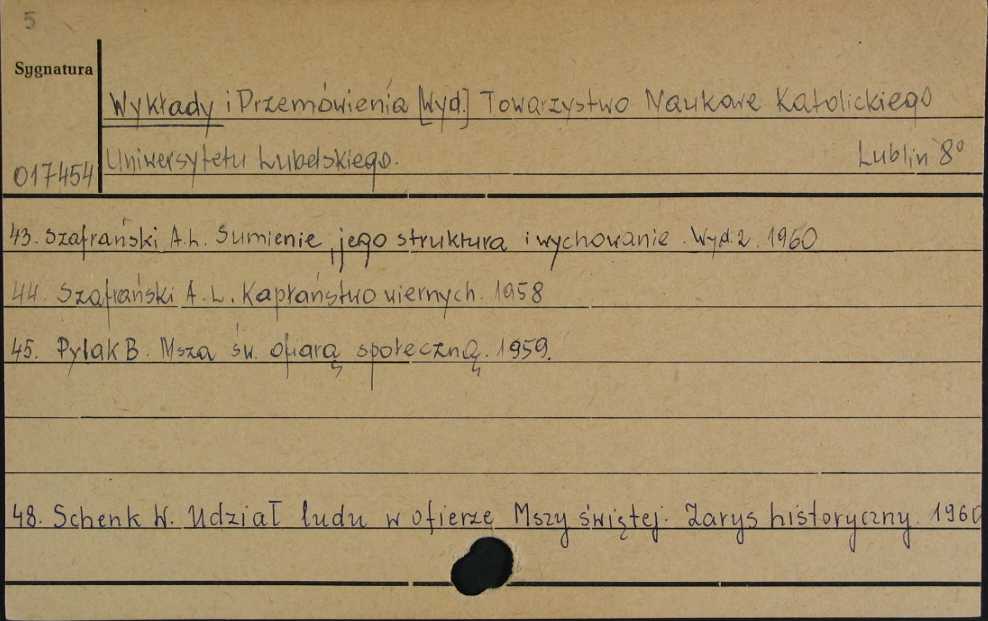 5
Sygnatura
Wykłady i Przemówienia [Wyd.] Towarzystwo Naukowe Katolickiego
017454 Uniwersytetu Lubelskiego. Lublin 8°
43. Szafrański A.L. Sumienie, jego struktura i wychowanie. Wyd. 2. 1960
44. Szafrański A.L. Kapłaństwo wiernych. 1958
45. Pylak B. Msza św. ofiarą społeczną. 1959.
48. Schenk W. Udział ludu w ofierze Mszy świętej. Zarys historyczny. 1960